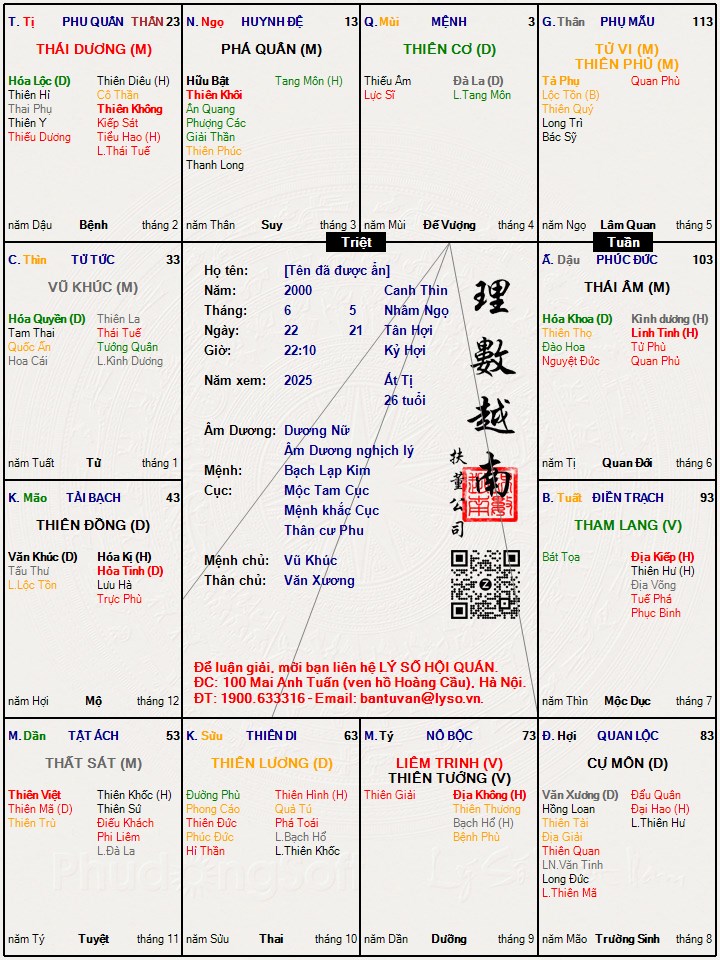 T. Tị PHU QUÂN THÂN 23
THÁI DƯƠNG (M)
Hóa Lộc (Đ) Thiên Diêu (H)
Thiên Hỉ Cô Thần
Thai Phụ Thiên Không
Thiên Y Kiếp Sát
Thiếu Dương Tiểu Hao (H)
L.Thái Tuế
năm Dậu Bệnh tháng 2
N. Ngọ HUYNH ĐỆ 13
PHÁ QUÂN (M)
Hữu Bật Tang Môn (H)
Thiên Khôi
Ân Quang
Phượng Các
Giải Thần
Thiên Phúc
Thanh Long
năm Thân Suy tháng 3
Q. Mùi MỆNH 3
THIÊN CƠ (Đ)
Thiếu Âm Đà La (Đ)
Lực Sĩ L.Tang Môn
năm Mùi Đế Vượng tháng 4
G. Thân PHỤ MẪU 113
TỬ VI (M)
THIÊN PHỦ (M)
Tả Phụ Quan Phủ
Lộc Tồn (B)
Thiên Quý
Long Trì
Bác Sỹ
năm Ngọ Lâm Quan tháng 5
Triệt
Tuần
C. Thìn TỬ TỨC 33
VŨ KHÚC (M)
Hóa Quyền (Đ) Thiên La
Tam Thai Thái Tuế
Quốc Ấn Tướng Quân
Hoa Cái L.Kình Dương
năm Tuất Tử tháng 1
Họ tên: [Tên đã được ẩn]
Năm: 2000 Canh Thìn
Tháng: 6 5 Nhâm Ngọ
Ngày: 22 21 Tân Hợi
Giờ: 22:10 Kỷ Hợi
Năm xem: 2025 Ất Tị
26 tuổi
Âm Dương: Dương Nữ
Âm Dương nghịch lý
Mệnh: Bạch Lạp Kim
Cục: Mộc Tam Cục
Mệnh khắc Cục
Thân cư Phu
Mệnh chủ: Vũ Khúc
Thân chủ: Văn Xương
理數越南
扶董公司
Để luận giải, mời bạn liên hệ LÝ SỐ HỘI QUÁN.
ĐC: 100 Mai Anh Tuấn (ven hồ Hoàng Cầu), Hà Nội.
ĐT: 1900.633316 - Email: bantuvan@lyso.vn.
Ấ. Dậu PHÚC ĐỨC 103
THÁI ÂM (M)
Hóa Khoa (Đ) Kình dương (H)
Thiên Thọ Linh Tinh (H)
Đào Hoa Tử Phù
Nguyệt Đức Quan Phù
năm Tị Quan Đới tháng 6
K. Mão TÀI BẠCH 43
THIÊN ĐỒNG (Đ)
Văn Khúc (Đ) Hóa Kị (H)
Tấu Thư Hỏa Tinh (Đ)
L.Lộc Tồn Lưu Hà
Trực Phù
năm Hợi Mộ tháng 12
B. Tuất ĐIỀN TRẠCH 93
THAM LANG (V)
Bát Tọa Địa Kiếp (H)
Thiên Hư (H)
Địa Võng
Tuế Phá
Phục Binh
năm Thìn Mộc Dục tháng 7
M. Dần TẬT ÁCH 53
THẤT SÁT (M)
Thiên Việt Thiên Khốc (H)
Thiên Mã (Đ) Thiên Sứ
Thiên Trù Điếu Khách
Phi Liêm
L.Đà La
năm Tý Tuyệt tháng 11
K. Sửu THIÊN DI 63
THIÊN LƯƠNG (Đ)
Đường Phù Thiên Hình (H)
Phong Cáo Quả Tú
Thiên Đức Phá Toái
Phúc Đức L.Bạch Hổ
Hỉ Thần L.Thiên Khốc
năm Sửu Thai tháng 10
M. Tý NÔ BỘC 73
LIÊM TRINH (V)
THIÊN TƯỚNG (V)
Thiên Giải Địa Không (H)
Thiên Thương
Bạch Hổ (H)
Bệnh Phù
năm Dần Dưỡng tháng 9
Đ. Hợi QUAN LỘC 83
CỰ MÔN (Đ)
Văn Xương (Đ) Đẩu Quân
Hồng Loan Đại Hao (H)
Thiên Tài L.Thiên Hư
Địa Giải
Thiên Quan
LN.Văn Tinh
Long Đức
L.Thiên Mã
năm Mão Trường Sinh tháng 8